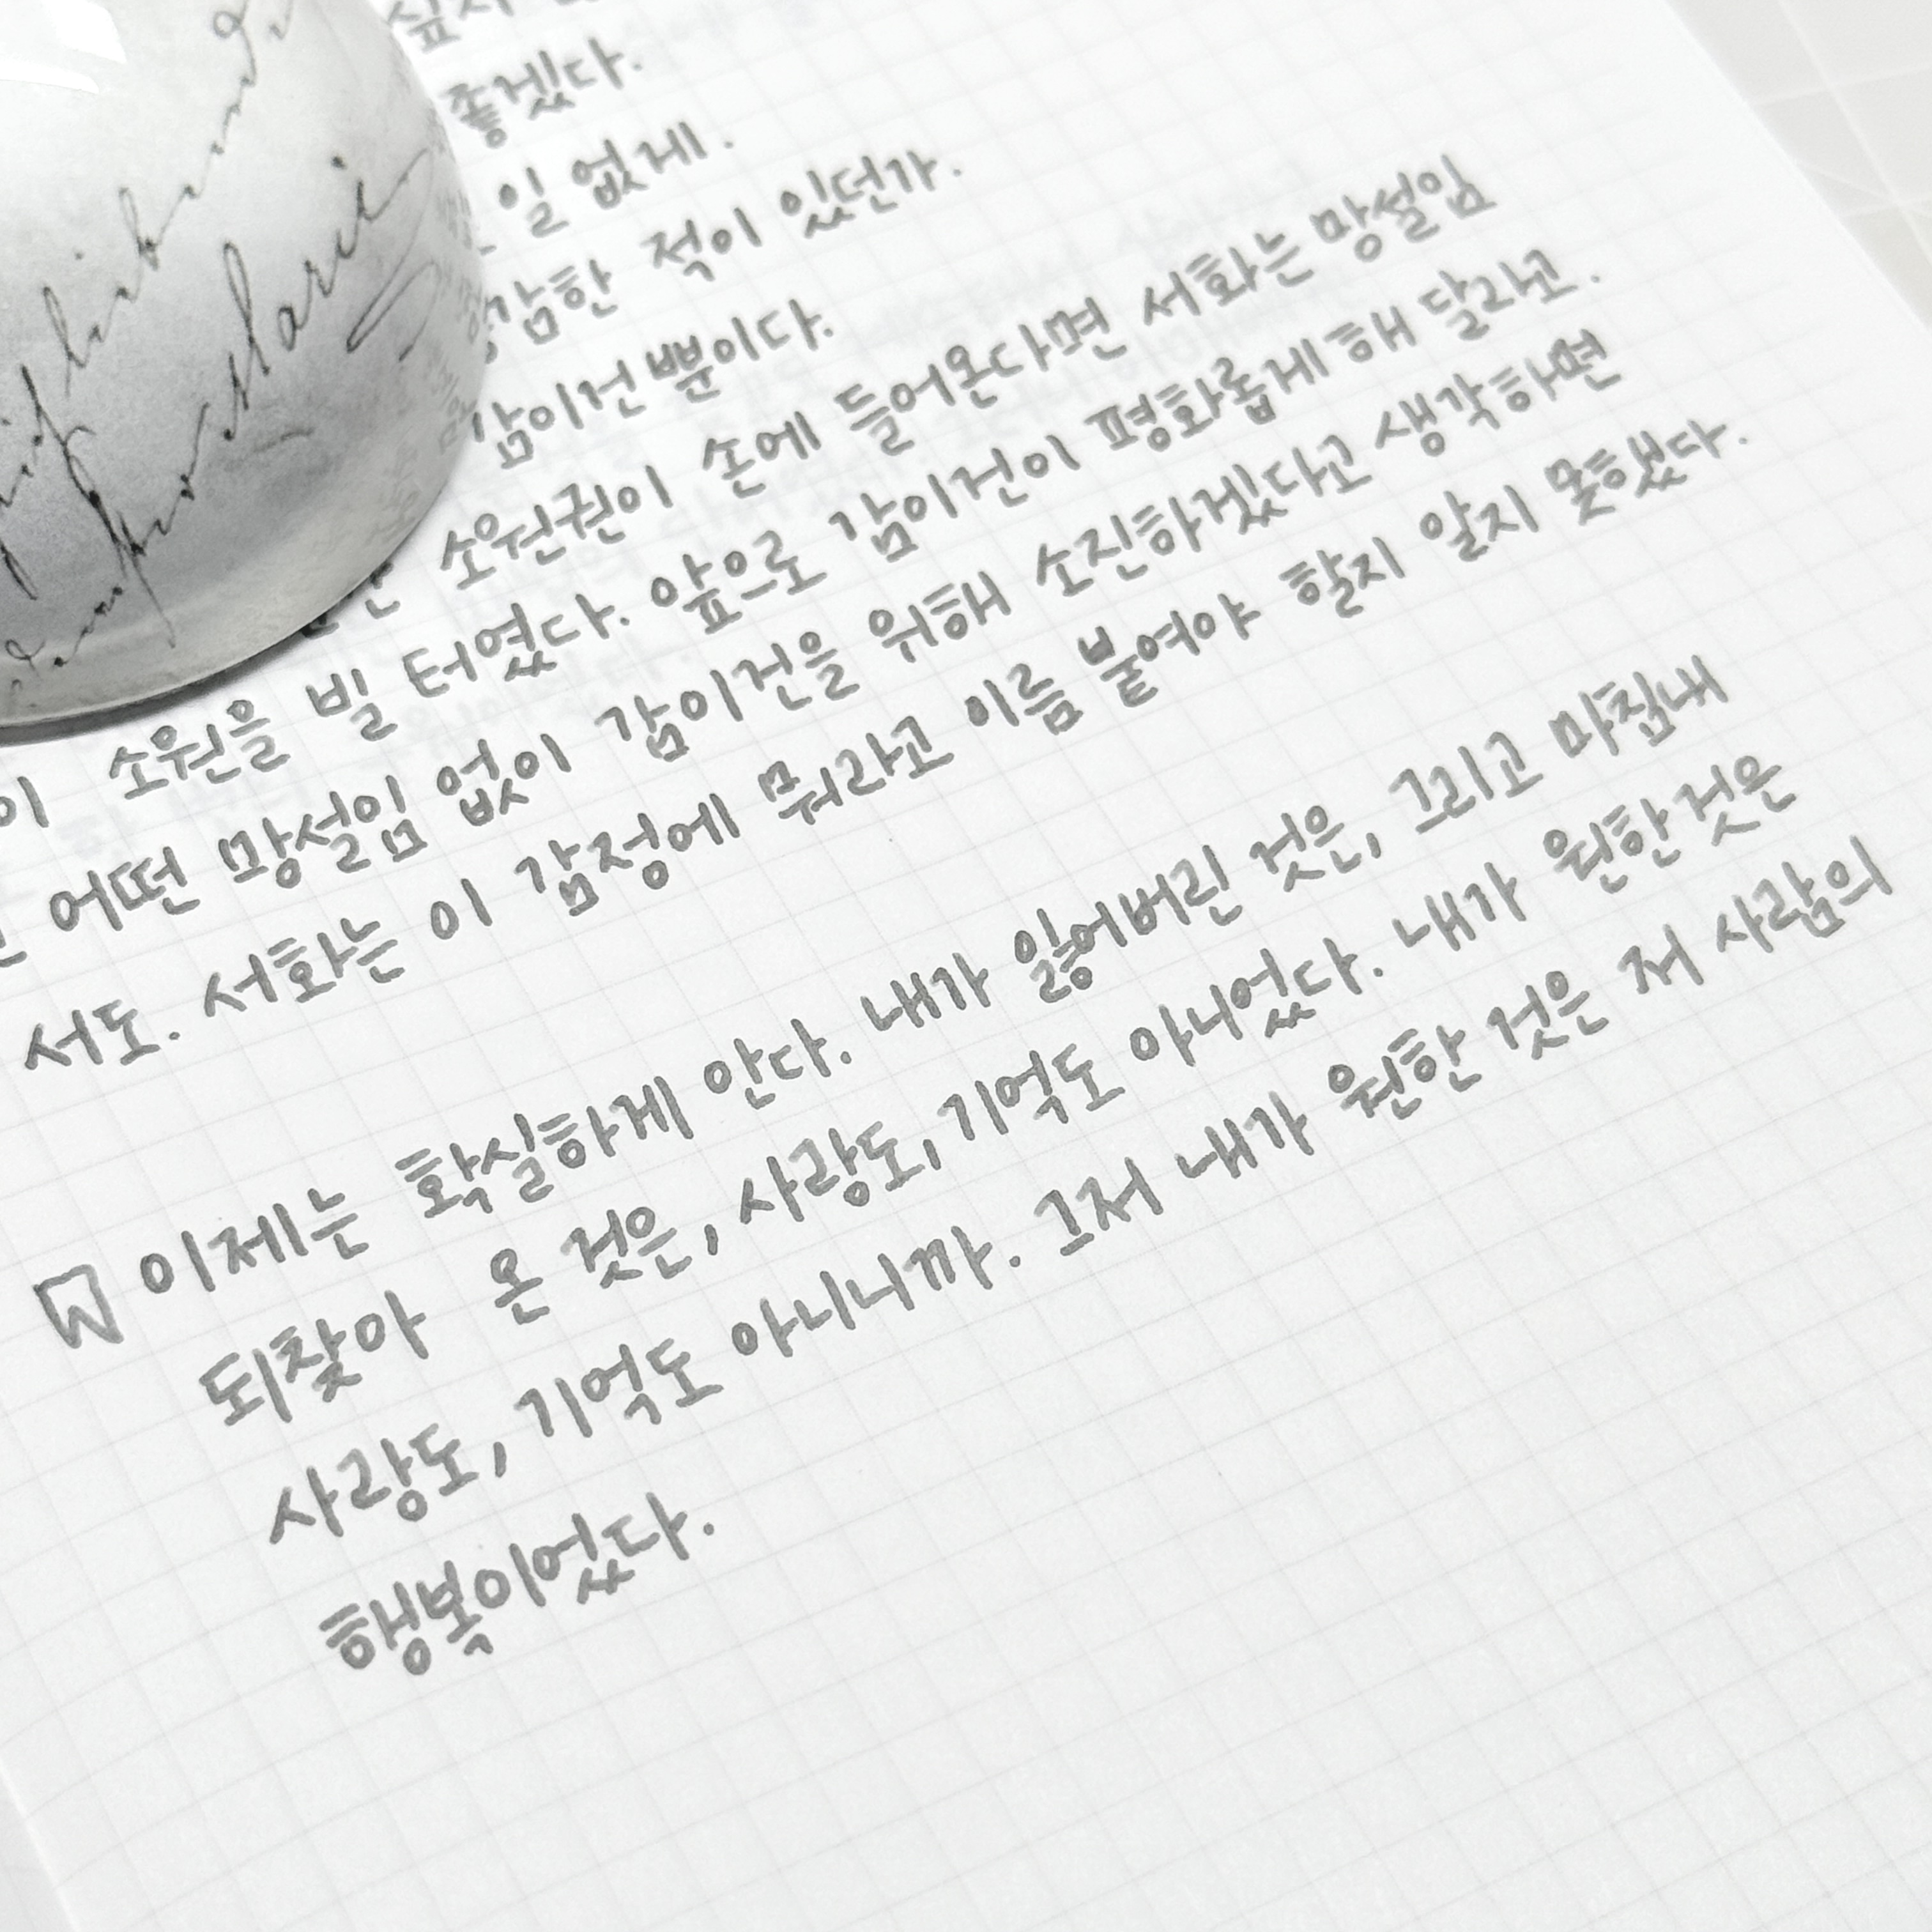 좋겠다.
일 없게.
감한 적이 있던가.
감이건뿐이다.
소원권이 손에 들어온다면 서화는 망설임
이 소원을 빌 터였다. 앞으로 감이건이 평화롭게 해 달라고.
어떤 망설임 없이 감이건을 위해 소진하겠다고 생각하면
서도. 서화는 이 감정에 뭐라고 이름 붙여야 할지 알지 못했다.
이제는 확실하게 안다. 내가 잃어버린 것은, 그리고 마침내
되찾아 온 것은, 사랑도, 기억도 아니었다. 내가 원한 것은
사랑도, 기억도 아니니까. 그저 내가 원한 것은 저 사람의
행복이었다.